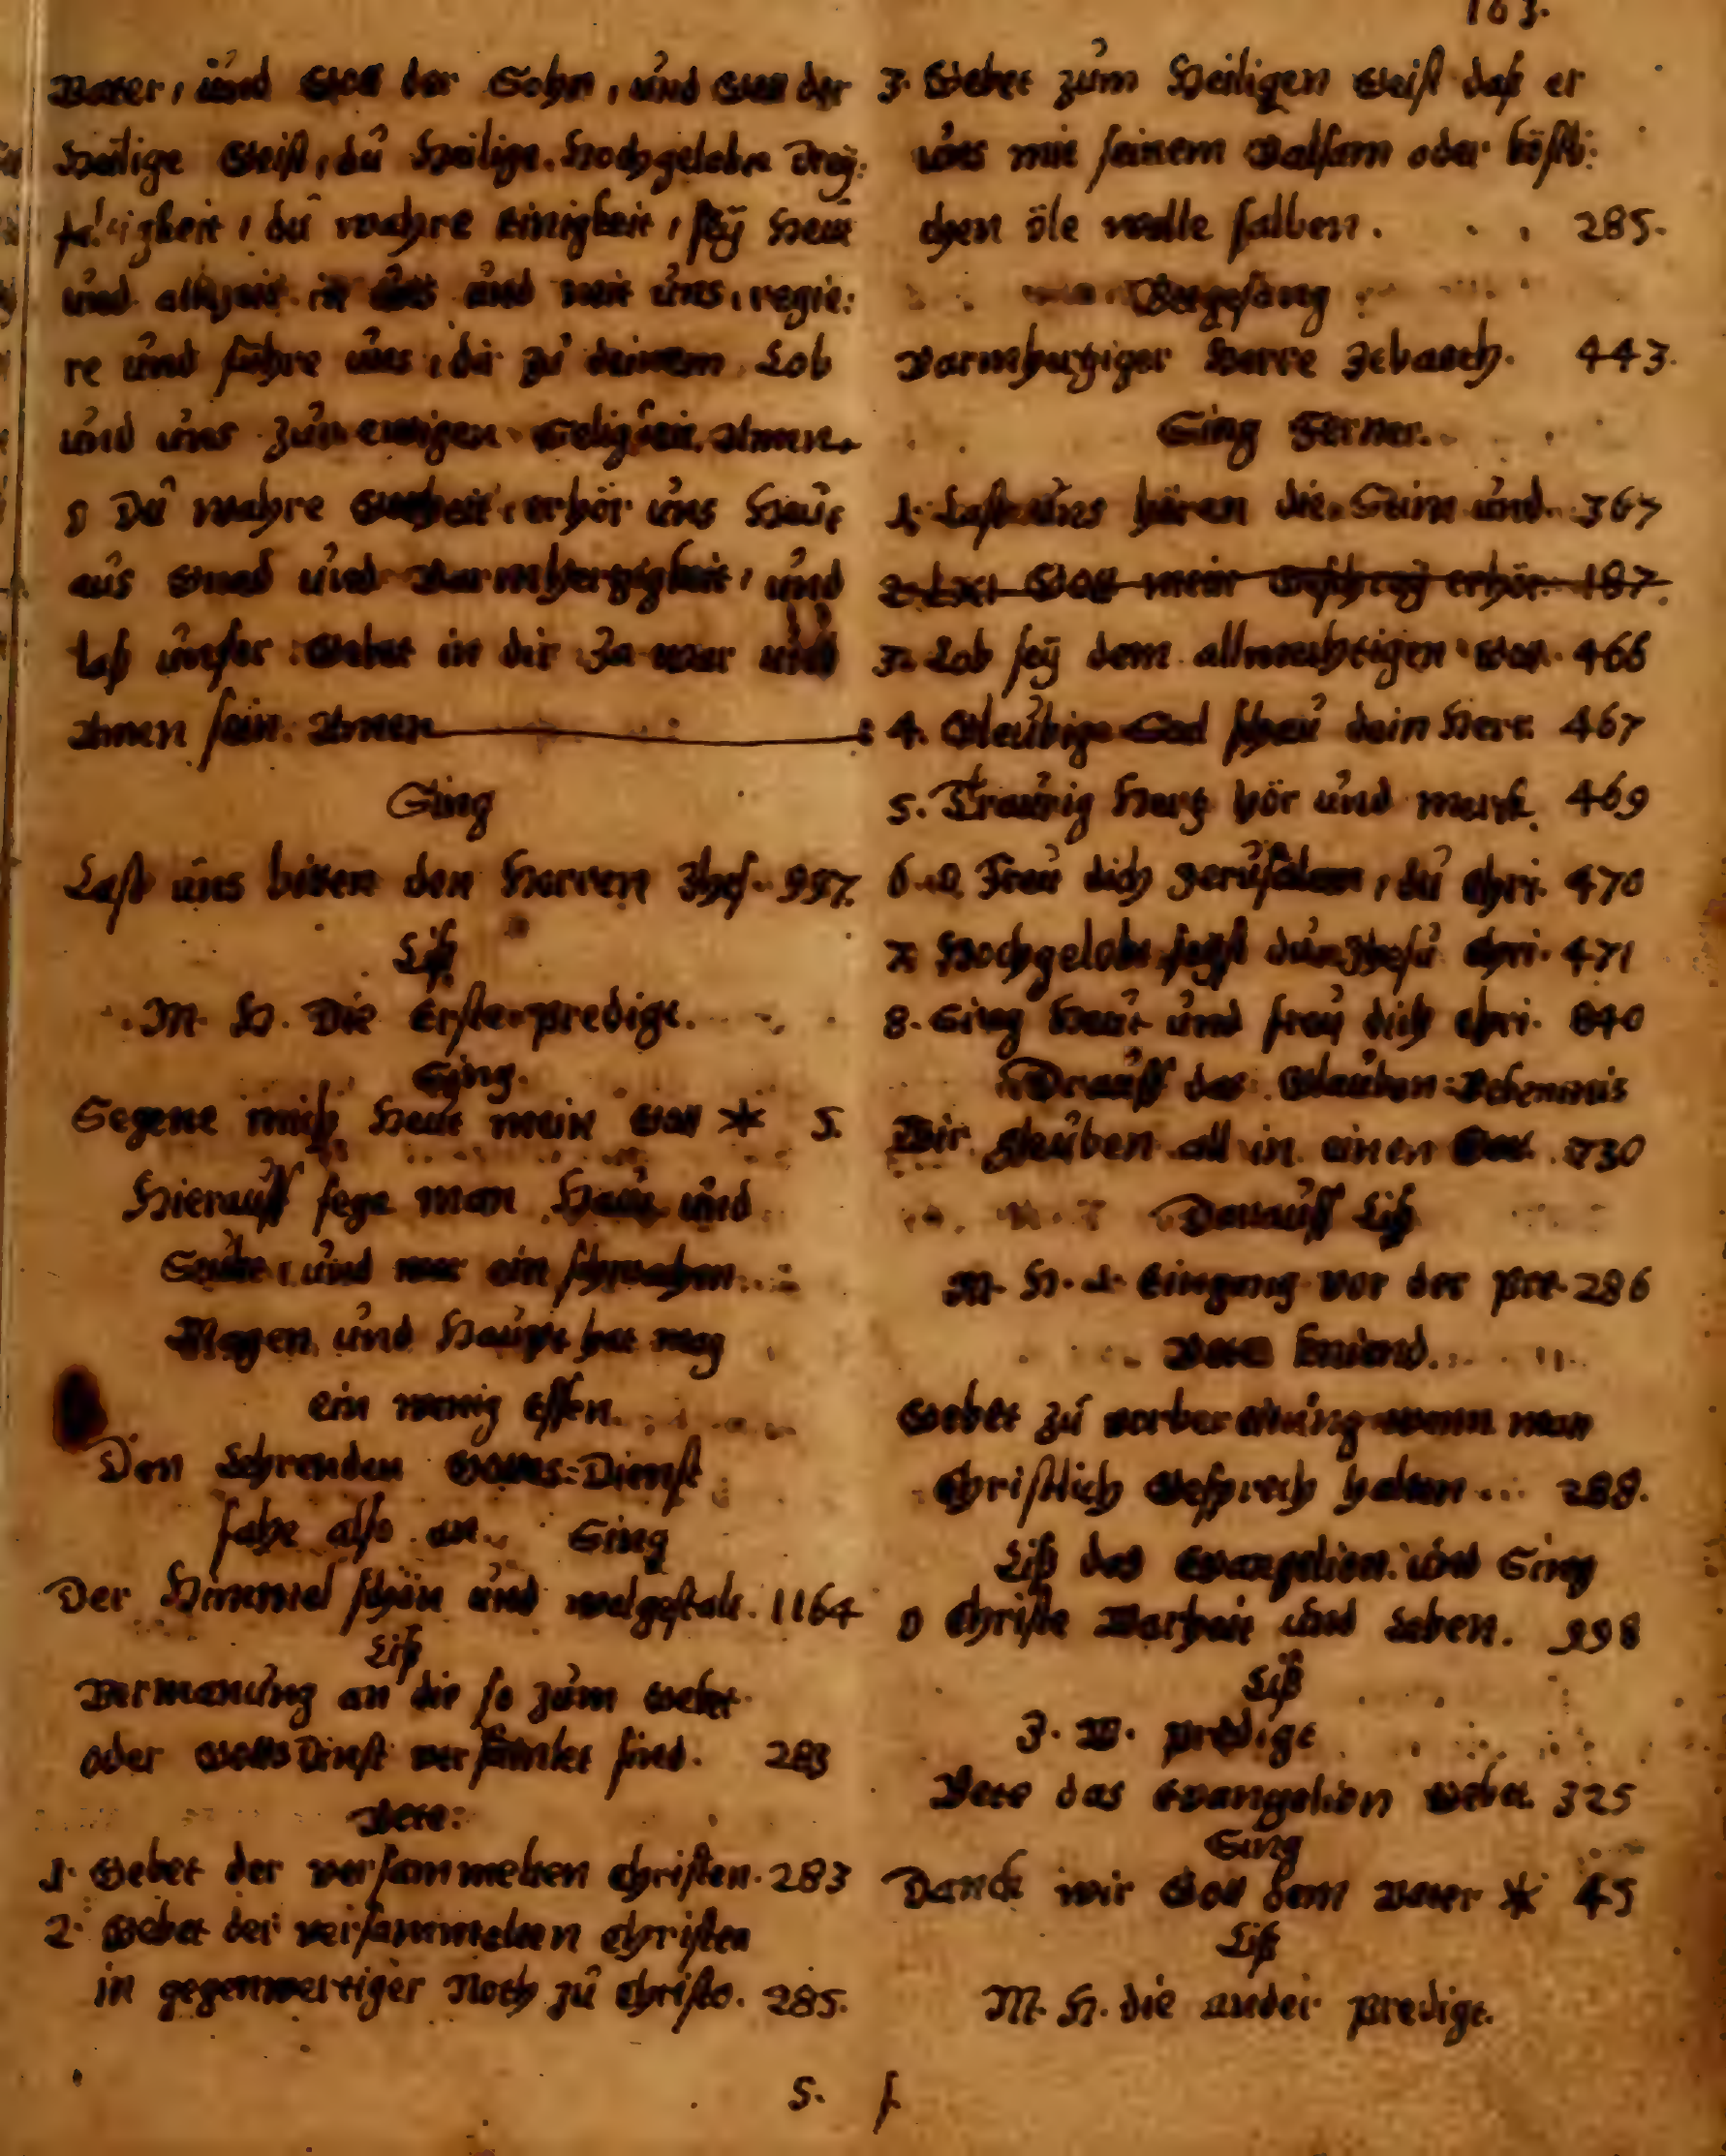 163.
Vater, und Gott der Sohn, und Gott der
Heilige Geist, du Heilige Hochgelobte Drey:
faltigkeit, du wahre Einigkeit, sey Heut
und allzeit in uns und mit uns, regie:
re und führe uns, dir zu deinem Lob
und uns zur ewigen Seligkeit. Amen.
O Du wahre Gottheit, erhör uns Heut
aus Gnad und Barmhertzigkeit, und
laß unser Gebet in dir Ja war und
Amen sein. Amen
Sing
Last uns bitten den Herren Jhes. 997.
Liß
M. H. Die Erste predigt.
Sing.
Segene mich Heut mein Gott * 5.
Hierauff fege man Hauß und
Stube, und wer ein schwachen
Magen und Haupt hat mag
ein wenig Essen.
Den Lehrenden Gottes-Dienst
fahe also an. Sing
Der Himmel schön und wolgestalt. 1164
Liß
Vermanung an die so zum Gebet
oder Gottsdienst versamlet sind. 283
Bete:
1. Gebet der versammelten Christen. 283
2. Gebet der versammelten Christen
in gegenwertiger Noth zu Christo. 285.
3. Gebet zum Heiligen Geist daß er
uns mit seinem Balsam oder köstli:
chen öle wolle salben. 285.
Betgesang
Barmhertziger Herre Zebaoth. 443.
Sing Ferner.
1. Last uns hören die Stim und. 367
2. Gott mein Geschrey erhör. 187.
3. Lob sey dem allmechtigen Gott. 466
4. Gleubige Seel schau dein Herr. 467
5. Traurig Hertz hör und merk. 469
6. O Freu dich Jerusalem, du Chri. 470
7. Hochgelobt seyst du Jhesu Chri. 471
8. Sing Heut und freu dich Chri. 840
Drauff das Glauben-Bekenntnis
Wir gleuben all in einen Gott. 730
Darauff Liß
M. H. 1. Eingang vor der Pre. 286
Bete kniend.
Gebet zu vorbereitung wenn man
Christlich Gesprech halten 288.
Liß das Evangelion und Sing
O Christe Warheit und Leben. 998
Liß
J. W. predigt
Bete das Evangelion Gebet. 325
Sing
Danck wir Gott dem Vater * 45
Liß
M. H. die ander predigt.
S. f.